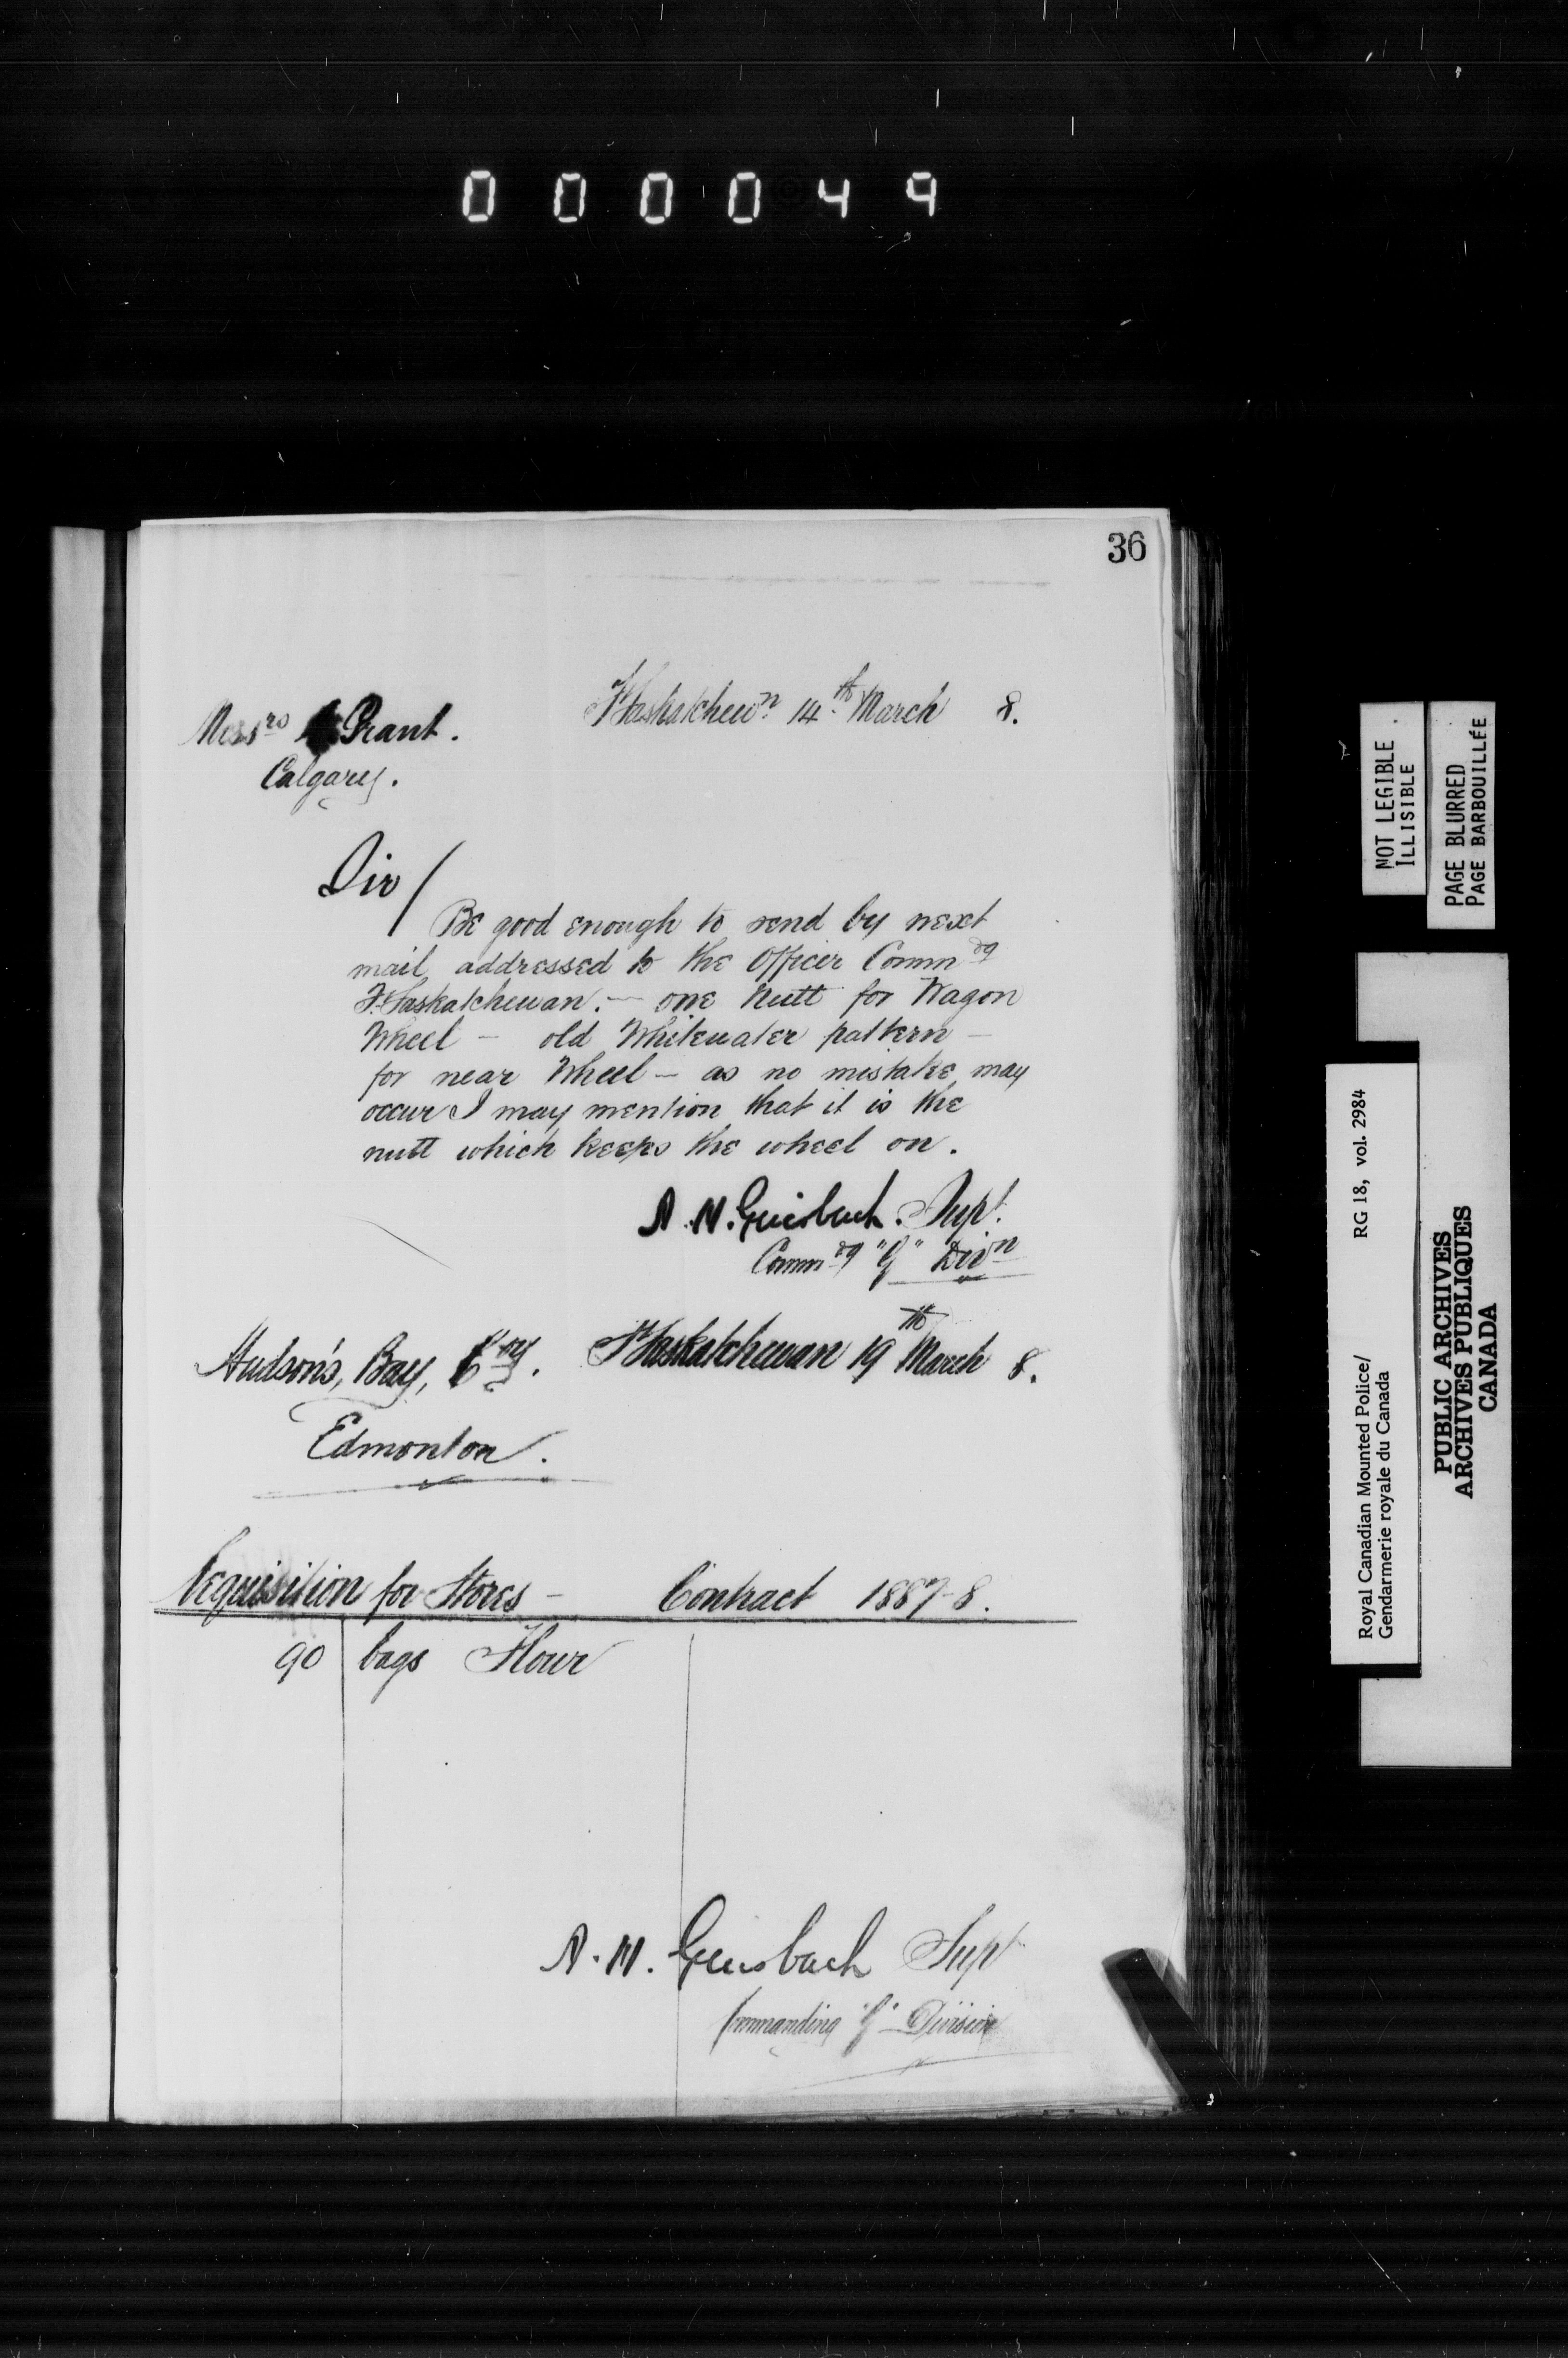 000049
36
Ft Saskatchewn 14th March 8.
Messrs Grant.
Calgary.
Sir/
Be good enough to send by next
mail, addressed to the Officer Commdg
Ft. Saskatchewan. — one Nutt for Wagon
Wheel — old Whitewater pattern —
for near Wheel — as no mistake may
occur I may mention that it is the
nutt which keeps the wheel on.
A. H. Griesbach. Supt.
Commdg "G" Divn
Hudson's, Bay, Coy. Ft Saskatchewan 19th March 8.
Edmonton.
Requisition for Stores — Contract 1887-8.
90 bags Flour
A. H. Griesbach Supt
Commanding "G" Division
NOT LEGIBLE
ILLISIBLE
PAGE BLURRED
PAGE BARBOUILLÉE
Royal Canadian Mounted Police/ RG 18, vol. 2984
Gendarmerie royale du Canada
PUBLIC ARCHIVES
ARCHIVES PUBLIQUES
CANADA